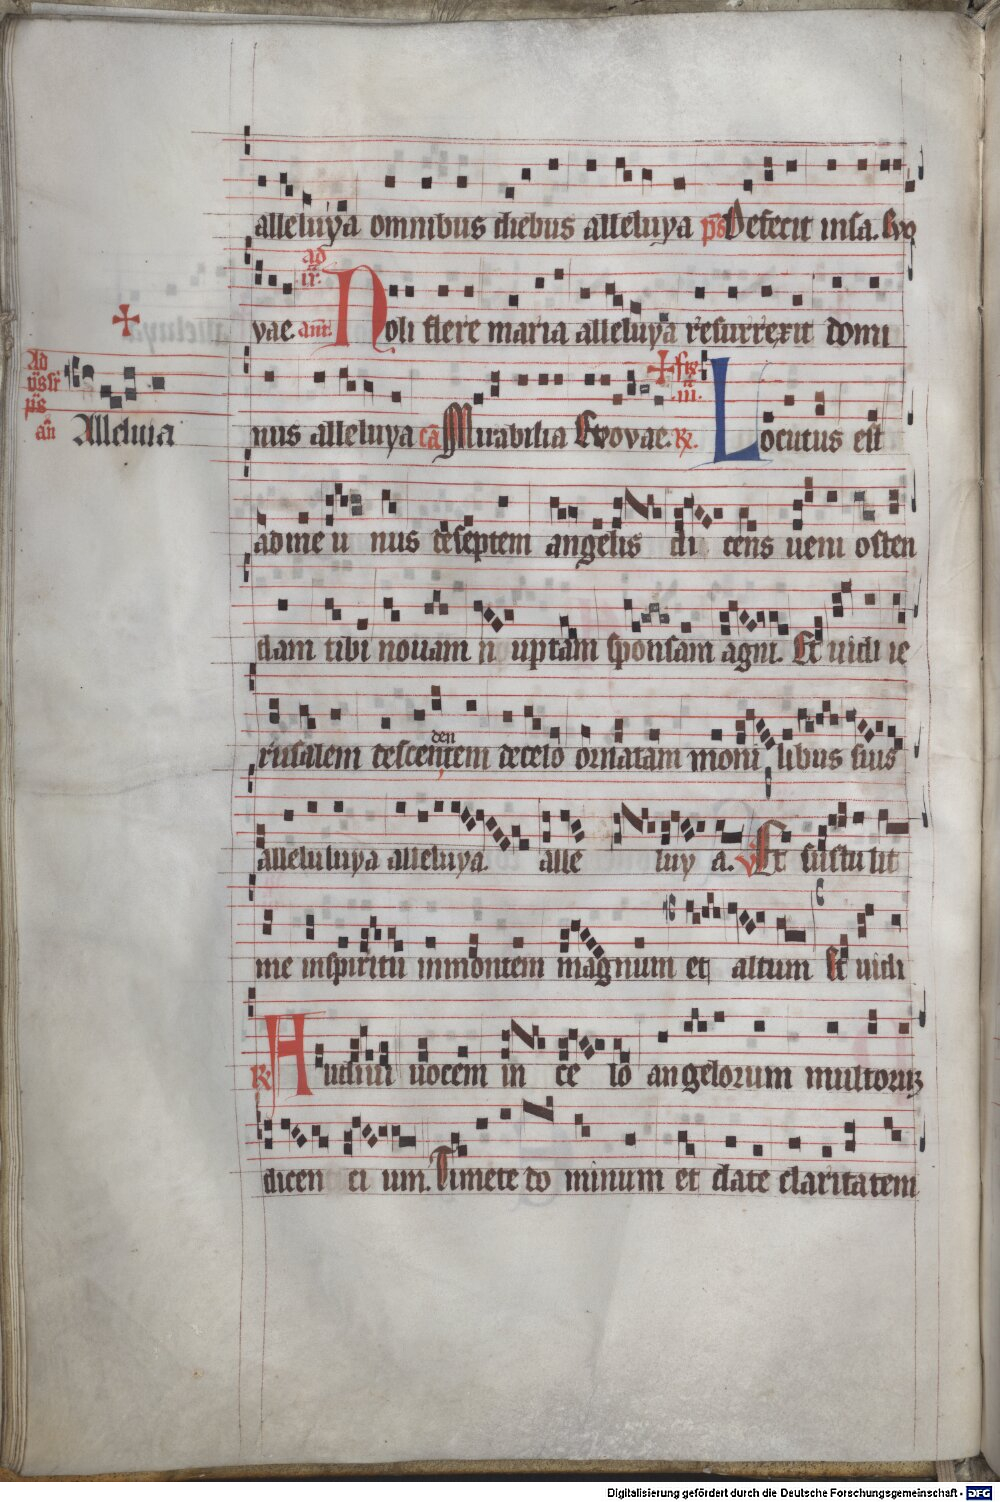 alleluya omnibus diebus alleluya ps Defecit insa. Evo
ad
vae. ant. Noli flere maria alleluya resurrexit domi
Ad
ps
an Alleluia
nus alleluya Mirabilia Evovae. R. Locutus est
ad me u nus de septem angelis di cens ueni osten
dam tibi nouam n uptam sponsam agni. Et uidi ie
den
rusalem descentem de celo ornatam moni libus suis
alleluluya alleluya. alle luy a. V Et sustulit
me in spiritu in montem magnum et altum Et uidi
R Audiui uocem in ce lo angelorum multoruʒ
dicen ci um. Timete do minum et date claritatem
Digitalisierung gefördert durch die Deutsche Forschungsgemeinschaft - DFG